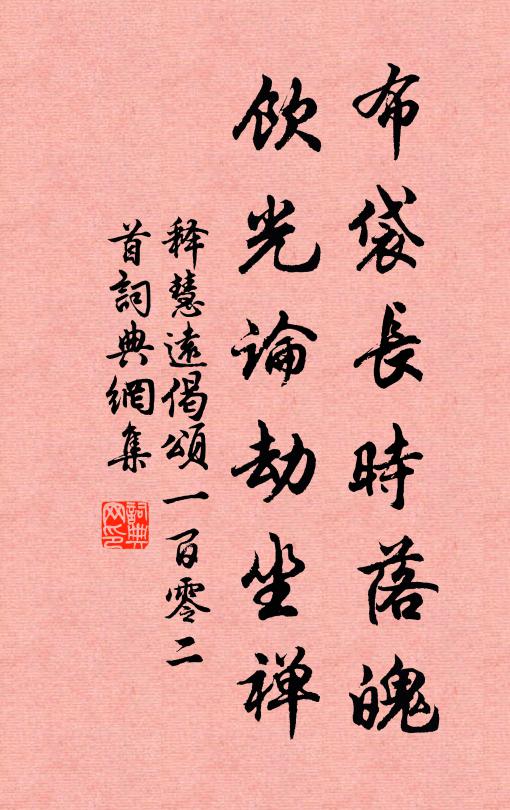 布袋長時落魄
飲光論劫坐禅
释慧遠偈頌一百零二
首詞典網集
詞典
网印